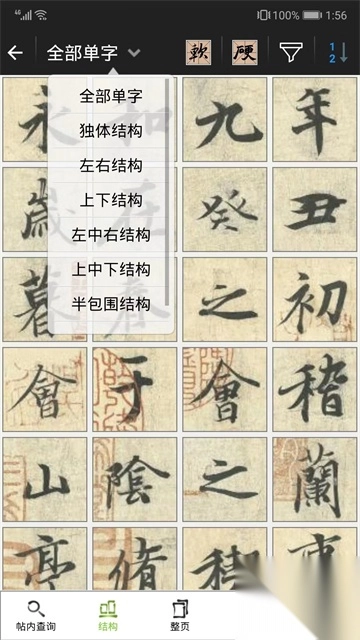 100% 1:56
全部单字 軟 硬 1 2
全部单字
独体结构
左右结构
上下结构
左中右结构
上中下结构
半包围结构
永 和 九 年
歲 在 癸 丑
暮 春 之 初
會 于 會 稽
山 陰 之 蘭
亭 脩 禊 事
帖内查询 结构 整页